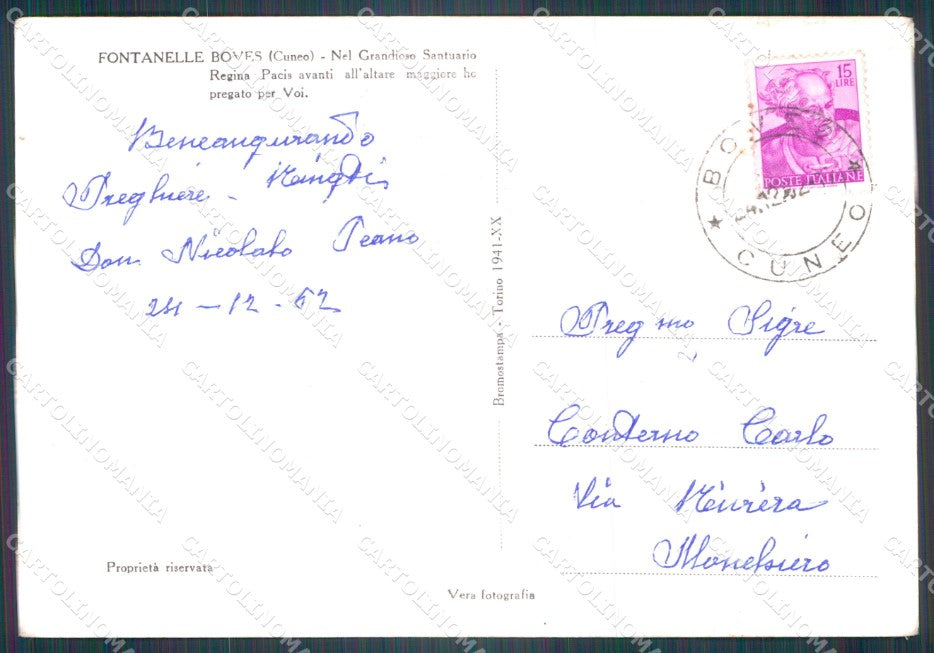 FONTANELLE BOVES (Cuneo) - Nel Grandioso Santuario
Regina Pacis avanti all'altare maggiore ho
pregato per Voi.
Beneaugurando
Preghiere -
Don Nicolato Peano
24 - 12 - 62
Proprietà riservata
Bromostampa - Torino 1941-XX
Vera fotografia
15
LIRE
POSTE ITALIANE
CUNEO
Preg mo Sigre
Conterno Carlo
Via
Monchiero
CARTOLINOMANIA